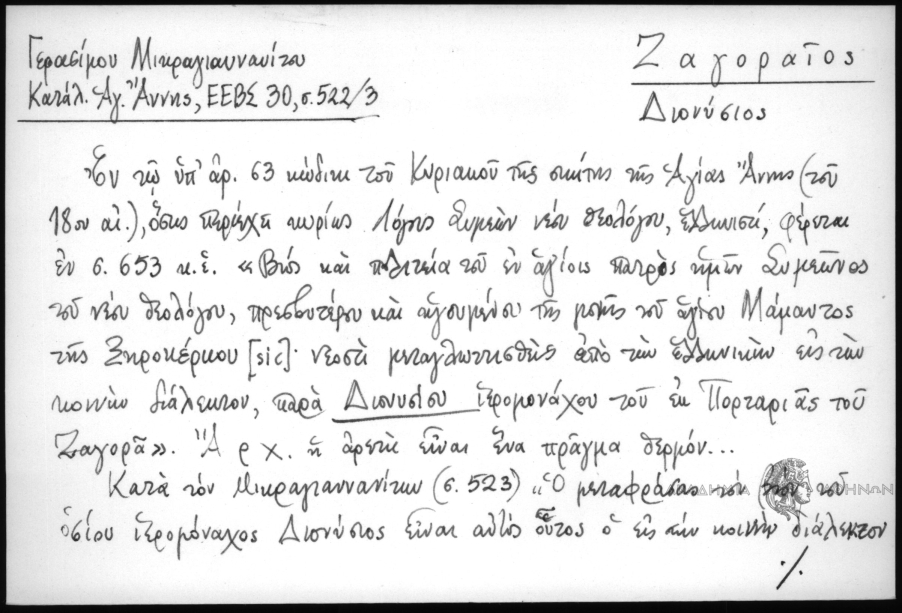 Γερασίμου Μικραγιαννανίτου
Κατάλ. Ἁγ. Ἄννης, ΕΕΒΣ 30, σ. 522/3
Ζαγοραῖος
Διονύσιος
Ἐν τῷ ὑπ' ἀρ. 63 κώδικι τοῦ Κυριακοῦ τῆς σκήτης τῆς Ἁγίας Ἄννης (τοῦ
18ου αἰ.), ὅστις περιέχει κυρίως Λόγους Συμεὼν νέου θεολόγου, ἑλληνιστί, φέρεται
ἐν σ. 653 κ.ἑ. «Βίος καὶ πολιτεία τοῦ ἐν ἁγίοις πατρὸς ἡμῶν Συμεῶνος
τοῦ νέου θεολόγου, πρεσβυτέρου καὶ ἡγουμένου τῆς μονῆς τοῦ ἁγίου Μάμαντος
τῆς Ξηροκέρκου [sic]· νεοστὶ μεταγλωττισθεὶς ἀπὸ τὴν ἑλληνικὴν εἰς τὴν
κοινὴν διάλεκτον, παρὰ Διονυσίου ἱερομονάχου τοῦ ἐκ Πορταριᾶς τοῦ
Ζαγορᾶ». Ἀρχ. ἡ ἀρετὴ εἶναι ἕνα πρᾶγμα θερμόν...
Κατὰ τὸν Μικραγιαννανίτην (σ. 523) «Ὁ μεταφράσας τὸν βίον τοῦ
ὁσίου ἱερομόναχος Διονύσιος εἶναι αὐτὸς οὗτος ὁ εἰς τὴν κοινὴν διάλεκτον
./.